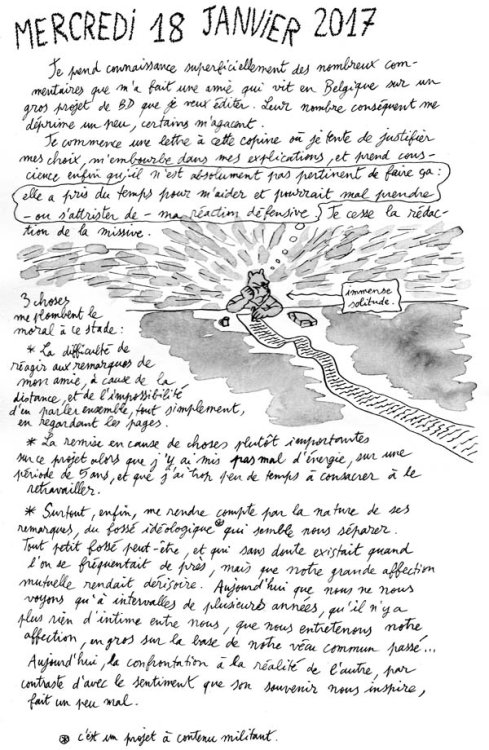 MERCREDI 18 JANVIER 2017
Je prend connaissance superficiellement des nombreux com-
mentaires que m'a fait une amie qui vit en Belgique sur un
gros projet de BD que je veux éditer. Leur nombre conséquent me
déprime un peu, certains m'agacent.
Je commence une lettre à cette copine où je tente de justifier
mes choix, m'embourbe dans mes explications, et prend cons-
cience enfin qu'il n'est absolument pas pertinent de faire ça :
elle a pris du temps pour m'aider et pourrait mal prendre
- ou s'attrister de - ma réaction défensive. Je cesse la rédac-
tion de la missive.
immense
solitude.
3 choses
me plombent le
moral à ce stade :
* La difficulté de
réagir aux remarques de
mon amie, à cause de la
distance, et de l'impossibilité
d'en parler ensemble, tout simplement,
en regardant les pages.
* La remise en cause de choses plutôt importantes
sur ce projet alors que j'y ai mis pas mal d'énergie, sur une
période de 5 ans, et que j'ai trop peu de temps à consacrer à le
retravailler.
* Surtout, enfin, me rendre compte par la nature de ses
remarques, du fossé idéologique* qui semble nous séparer.
Tout petit fossé peut-être, et qui sans doute existait quand
l'on se fréquentait de près, mais que notre grande affection
mutuelle rendait dérisoire. Aujourd'hui que nous ne nous
voyons qu'à intervalles de plusieurs années, qu'il n'y a
plus rien d'intime entre nous, que nous entretenons notre
affection, en gros sur la base de notre vécu commun passé...
Aujourd'hui, la confrontation à la réalité de l'autre, par
contraste d'avec le sentiment que son souvenir nous inspire,
fait un peu mal.
* c'est un projet à contenu militant.